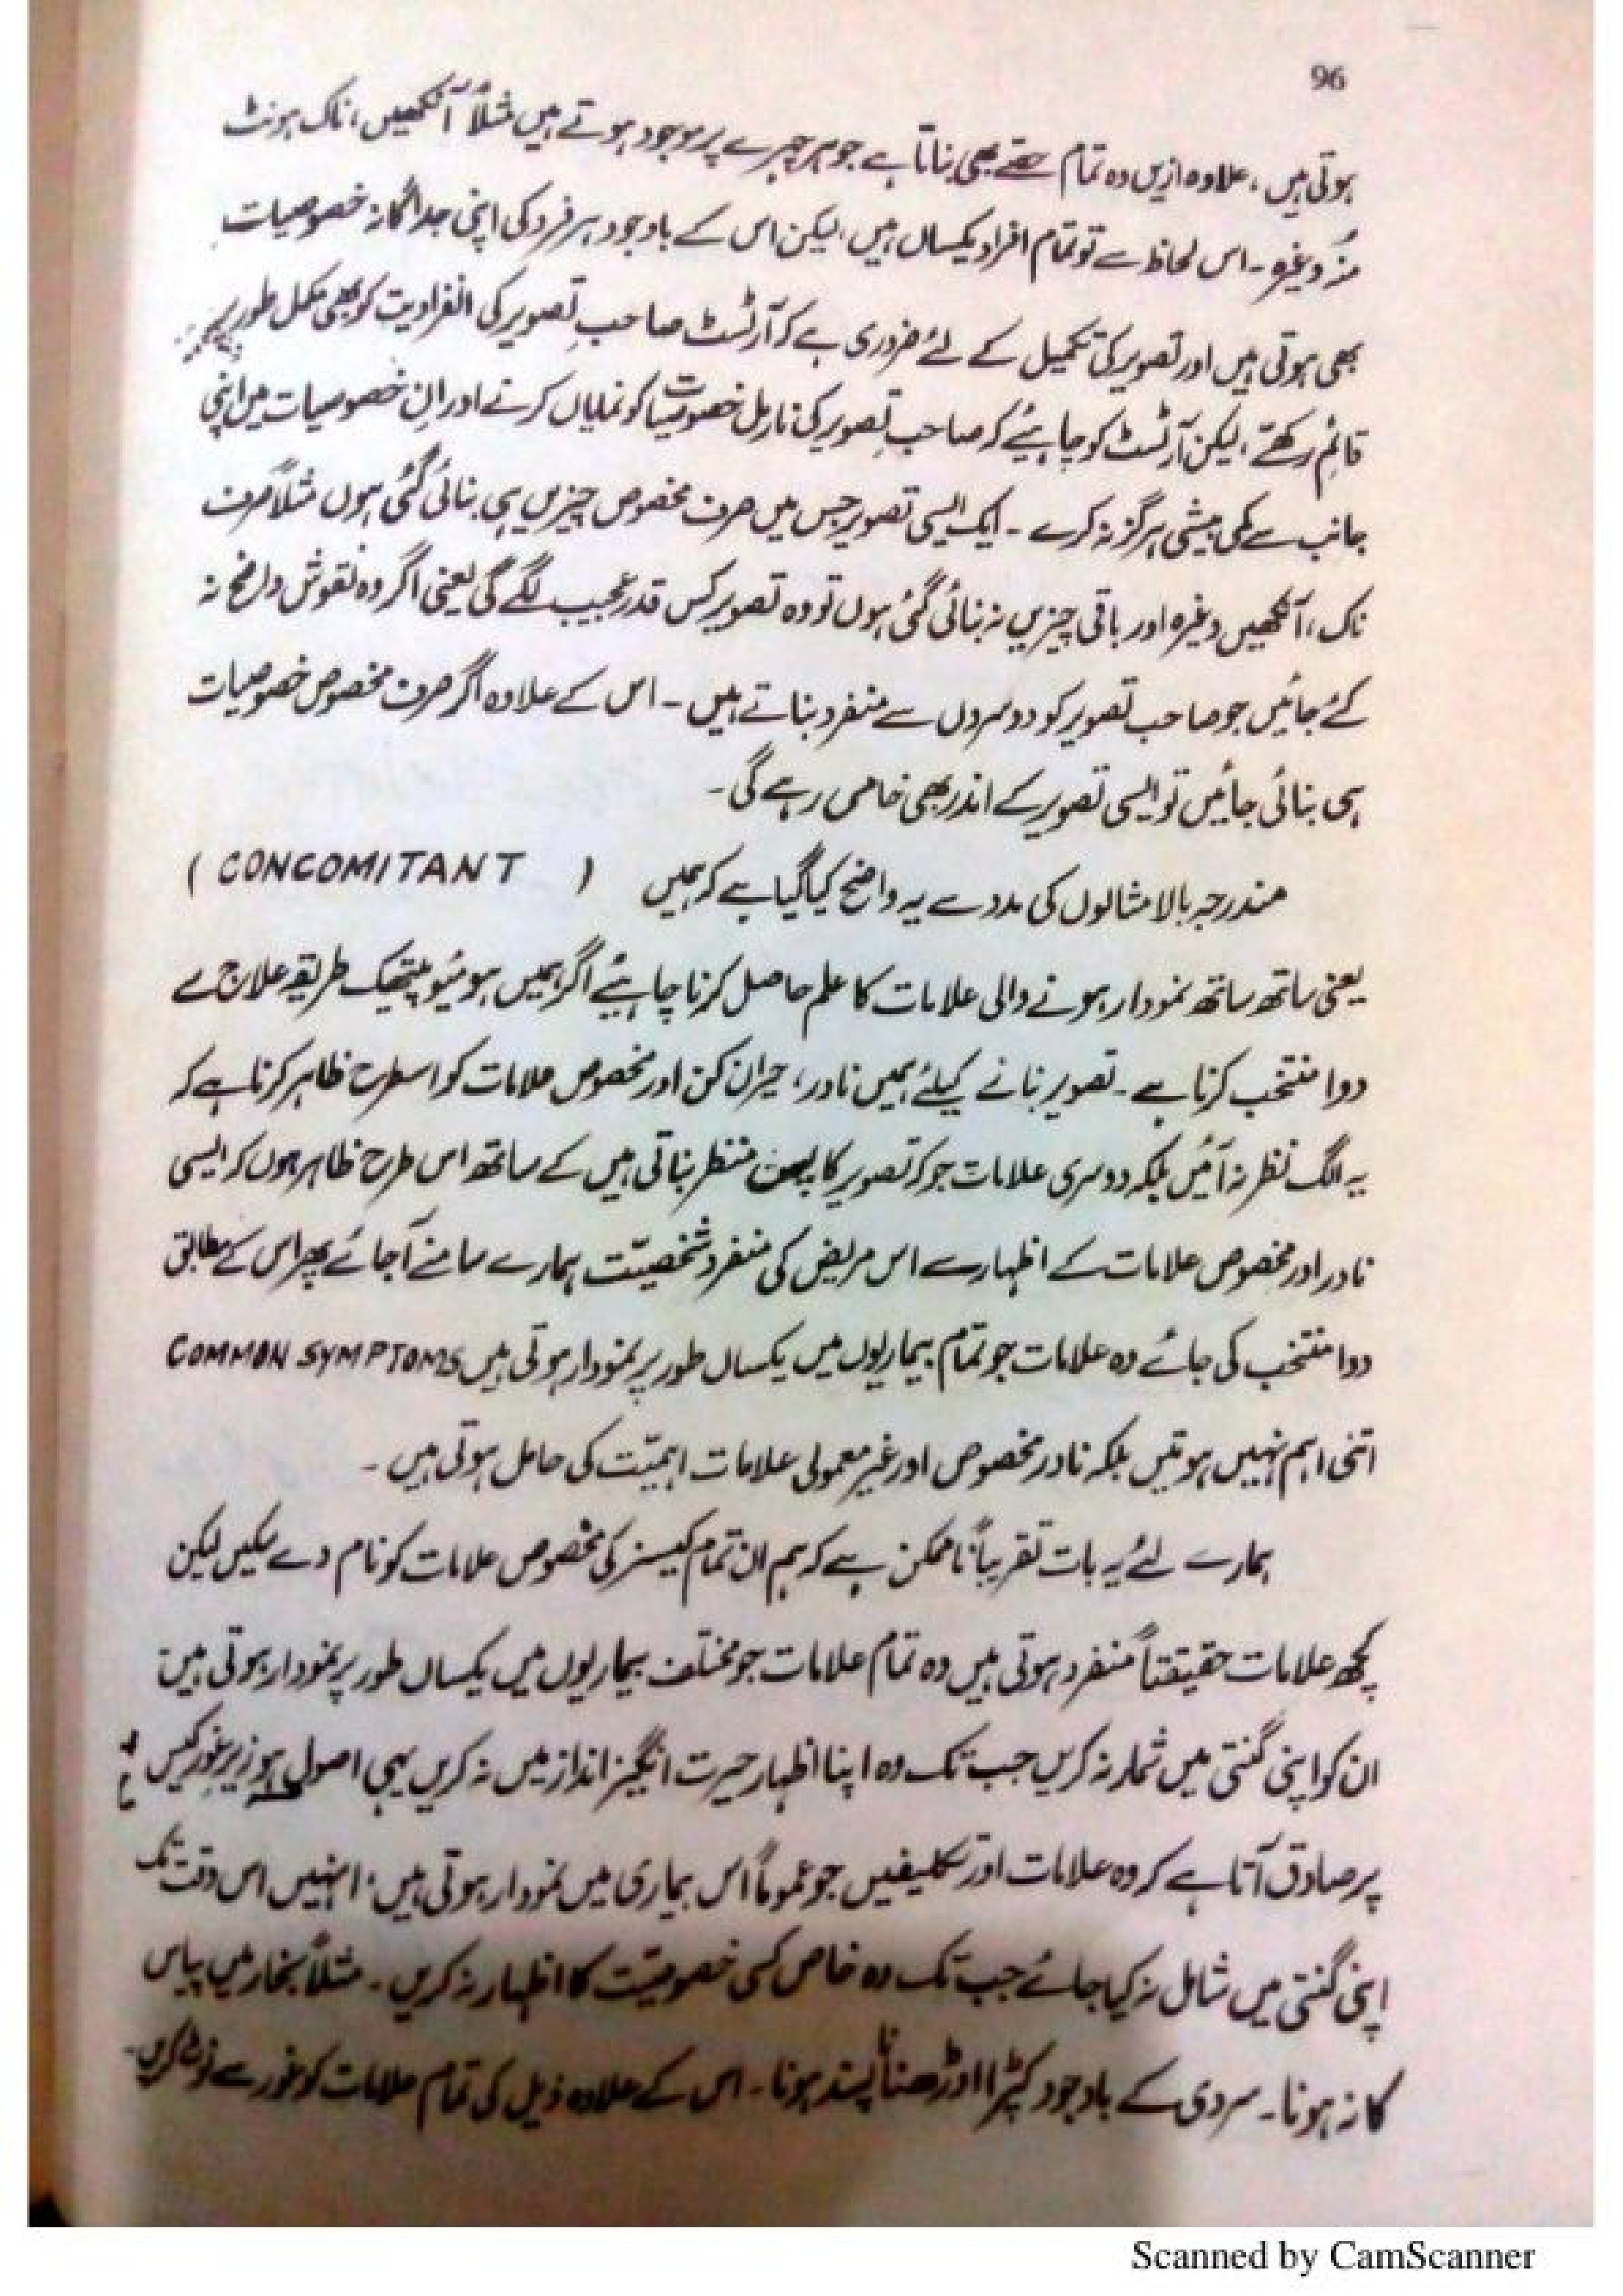 96
ہوتی ہیں، علاوہ ازیں وہ تمام حصے بھی بناتا ہے جو ہر چہرے پر موجود ہوتے ہیں مثلاً آنکھیں، ناک ہونٹ
منہ وغیرہ۔ اس لحاظ سے تو تمام افراد یکساں ہیں، لیکن اس کے باوجود ہر فرد کی اپنی جداگانہ خصوصیات
بھی ہوتی ہیں اور تصویر کی تکمیل کے لئے ضروری ہے کہ آرٹسٹ صاحبِ تصویر کی انفرادیت کو بھی مکمل طور پر
قائم رکھے، لیکن آرٹسٹ کو چاہیئے کہ صاحبِ تصویر کی نارمل خصوصیات کو نمایاں کرتے اور اِن خصوصیات میں اپنی
جانب سے کمی بیشی ہرگز نہ کرے۔ ایک ایسی تصویر جس میں صرف مخصوص چیزیں ہی بنائی گئی ہوں مثلاً صرف
ناک، آنکھیں وغیرہ اور باقی چیزیں نہ بنائی گئی ہوں تو وہ تصویر کس قدر عجیب لگے گی یعنی اگر وہ نقوش واضح نہ
کئے جائیں جو صاحب تصویر کو دوسروں سے منفرد بناتے ہیں۔ اس کے علاوہ اگر صرف مخصوص خصوصیات
ہی بنائی جائیں تو ایسی تصویر کے اندر بھی خامی رہے گی۔
مندرجہ بالا مثالوں کی مدد سے یہ واضح کیا گیا ہے کہ ہمیں (CONCOMITANT)
یعنی ساتھ ساتھ نمودار ہونے والی علامات کا علم حاصل کرنا چاہیئے اگر ہمیں ہومیوپیتھک طریقہ علاج سے
دوا منتخب کرنا ہے۔ تصویر بنانے کیلئے ہمیں نادر، حیران کن اور مخصوص علامات کو اسطرح ظاہر کرنا ہے کہ
یہ الگ نظر نہ آئیں بلکہ دوسری علامات جو کہ تصویر کا پس منظر بناتی ہیں کے ساتھ اس طرح ظاہر ہوں کہ ایسی
نادر اور مخصوص علامات کے اظہار سے اس مریض کی منفرد شخصیّت ہمارے سامنے آجائے پھر اس کے مطابق
دوا منتخب کی جائے وہ علامات جو تمام بیماریوں میں یکساں طور پر نمودار ہوتی ہیں COMMON SYMPTOMS
اتنی اہم نہیں ہوتیں بلکہ نادر مخصوص اور غیر معمولی علامات اہمیّت کی حامل ہوتی ہیں۔
ہمارے لئے یہ بات تقریباً ناممکن ہے کہ ہم ان تمام کیسز کی مخصوص علامات کو نام دے سکیں لیکن
کچھ علامات حقیقتاً منفرد ہوتی ہیں وہ تمام علامات جو مختلف بیماریوں میں یکساں طور پر نمودار ہوتی ہیں
ان کو اپنی گنتی میں شمار نہ کریں جب تک وہ اپنا اظہار حیرت انگیز انداز میں نہ کریں یہی اصول زیر غور کیس
پر صادق آتا ہے کہ وہ علامات اور تکلیفیں جو عموماً اس بیماری میں نمودار ہوتی ہیں، انہیں اس وقت تک
اپنی گنتی میں شامل نہ کیا جائے جب تک وہ خاص کسی خصوصیّت کا اظہار نہ کریں۔ مثلاً بخار میں پیاس
کا نہ ہونا۔ سردی کے باوجود کپڑا اوڑھنا ناپسند ہونا۔ اس کے علاوہ ذیل کی تمام علامات کو غور سے نوٹ کریں۔
Scanned by CamScanner